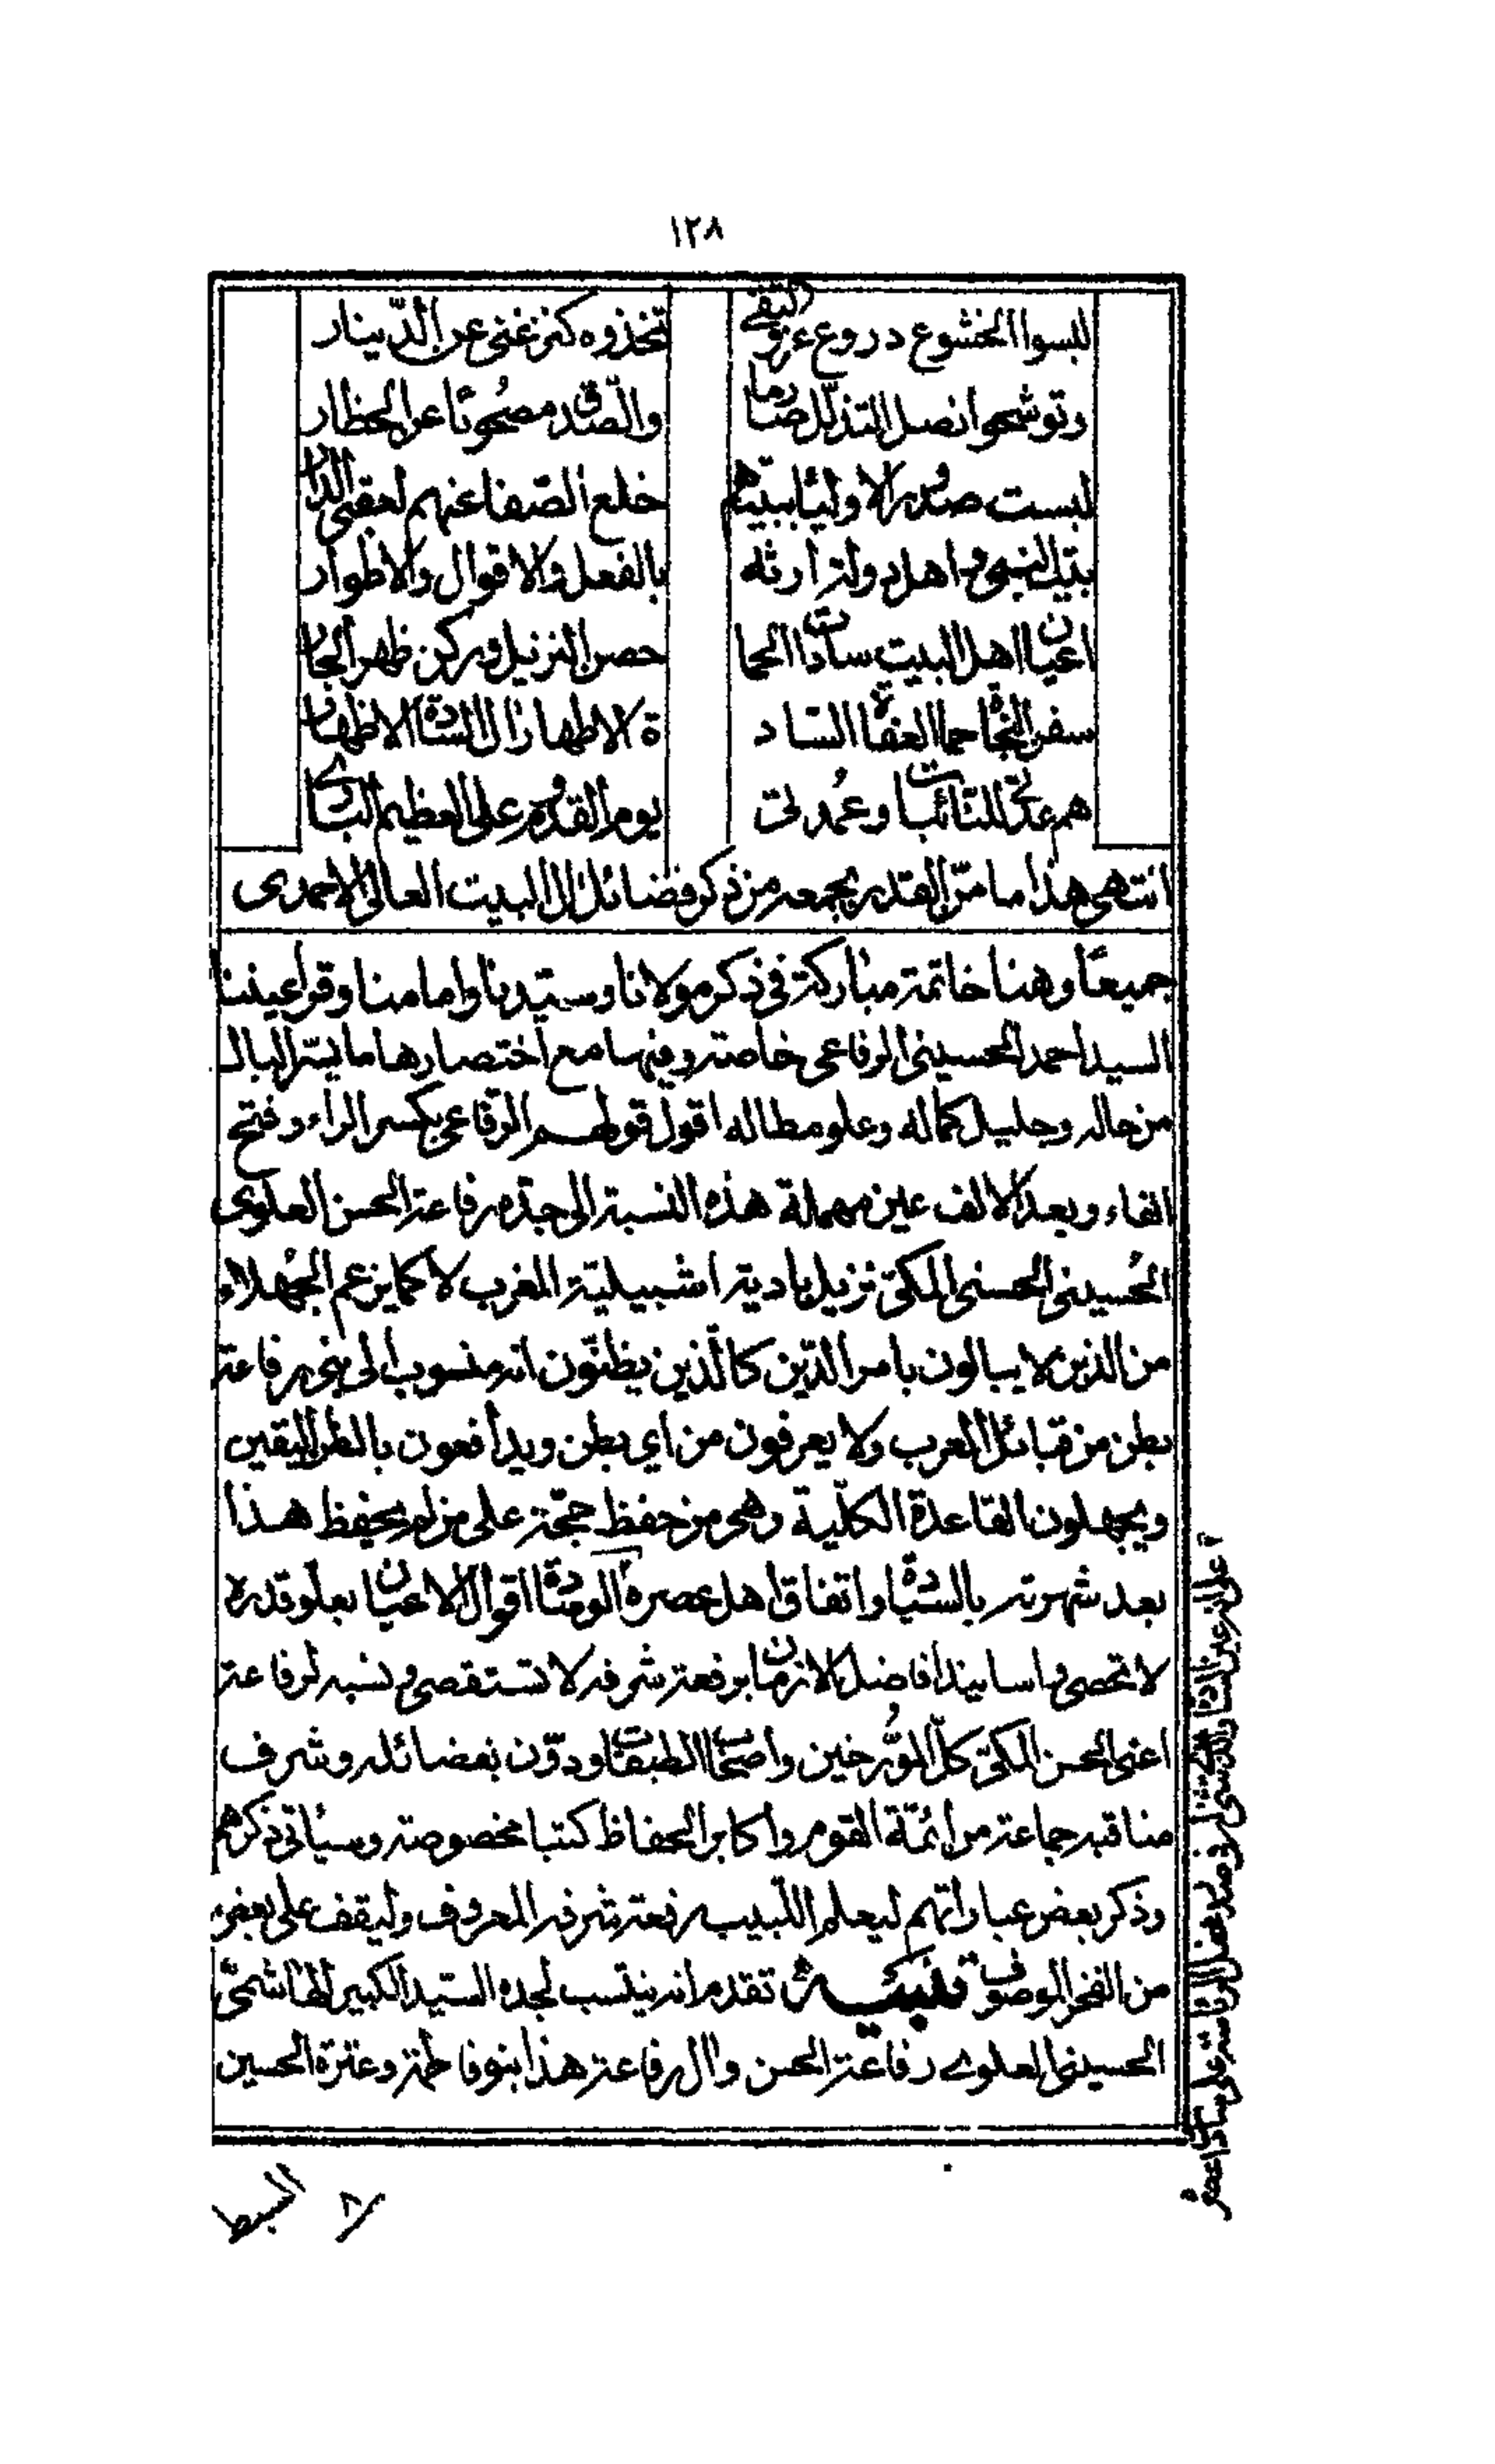 ١٢٨
لبسوا الخشوع دروع عز والتقى تخذوه كنز غنى عن الدّينار
وتوشحوا نصل التذلّل صارما والصّدق مصحوبا عن الحظار
لبست صدور الاوليا ببيتهم خلع الصّفا عنهم لعقبى الدار
بيت النبى واهله ولتراوثه بالفعل والاقوال والاطوار
اعيان اهل البيت سادات الحما حصن النزيل وركن ظهر الجار
سفن النجاة حما العفاة السّاد ة الاطهار ال السّادة الاطهار
هم عدّتى للنّائبات وعُمدتى يوم القدوم على العظيم البارى
انتهى هذا ما منّ القدير بجمعه من ذكر فضائل ال البيت العالى الاحمدى
جميعًا وهنا خاتمة مباركة فى ذكر مولانا وسيّدنا وامامنا وقرة اعيننا
السيد احمد الحسينى الرفاعى خاصة وفيها مع اختصارها ما يسرّ البال
من حاله وجليل كماله وعلو مطاله اقول قولهم الرّفاعى بكسر الراء وفتح
الفاء وبعد الالف عين مهملة هذه النسبة الى جدّه رفاعة الحسن العلوى
الحُسينى الحسنى المكىّ نزيل بادية اشبيليّة المغرب لا كما يزعم الجُهلاء
من الذين لا يبالون بامر الدّين كالّذين يظنّون انه منسوب الى بنى رفاعة
بطن من قبائل العرب ولا يعرفون من اي بطن ويدافعون بالظن اليقين
ويجهلون القاعدة الكلّية وهى من حفظ حجّة على من لم يحفظ هذا
بعد شهرته بالسّيادة واتفاق اهل عصره اقوال الاعيان بعلو قدره
لا تحصى واسانيد افاضل الازمان برفعة شرفه لا تستقصى ونسبه لرفاعة
اعنى الحسن المكىّ كلّ المؤرخين واصحاب الطبقات ودوّن بفضائله وشرف
مناقبه جماعة من ائمّة القوم واكابر الحفاظ كتبا مخصوصة وسيأتى ذكرهم
وذكر بعض عباراتهم ليعلم اللّبيب رفعة شرفه المعروف وليقف على بعض
من الفخر الموصوف تنبيه تقدم انه ينتسب لجده السّيد الكبير الهاشمىّ
الحسينى العلوى رفاعة الحسن وال رفاعة هذا بنو فاطمة وعترة الحسين